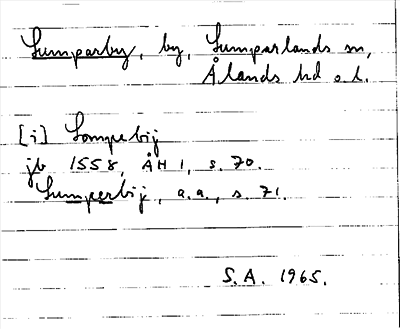 Sumparby, by, Sumparlands sn,
Ålands hd o. l.
[i] Sompebij
jb 1558, ÅH 1, s. 70.
Sumperbij, a.a., s. 71.
S.A. 1965.